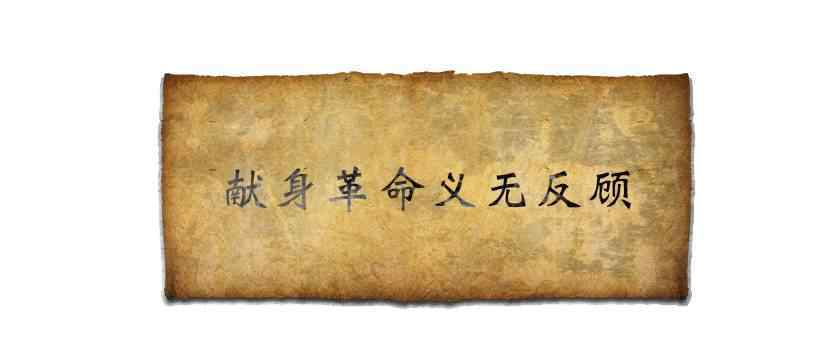 献身革命义无反顾